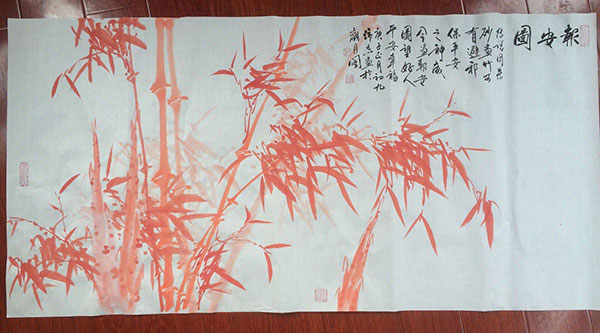 報安圖
傳說用朱
砂畫竹可
有避邪
保平安
之神威
今畫報安
圖望好人
平安幸福
庚子正月初九
畫於
月閣